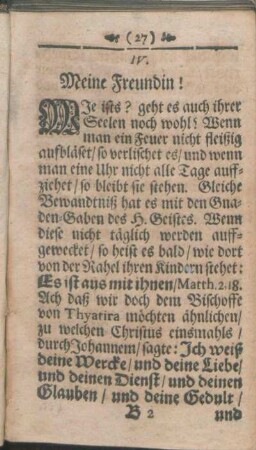 (27)
IV.
Meine Freundin!
WJe ists? geht es auch ihrer
Seelen noch wohl? Wenn
man ein Feuer nicht fleißig
aufbläset/ so verlischet es/ und wenn
man eine Uhr nicht alle Tage auff-
ziehet/ so bleibt sie stehen. Gleiche
Bewandtniß hat es mit den Gna-
den-Gaben des H. Geistes. Wenn
diese nicht täglich werden auff-
gewecket/ so heist es bald/ wie dort
von der Rahel ihren Kindern stehet:
Es ist aus mit ihnen/ Matth. 2. 18.
Ach daß wir doch dem Bischoffe
von Thyarira möchten ähnlichen/
zu welchen Christus einsmahls/
durch Johannem/ sagte: Jch weiß
deine Wercke/ und deine Liebe/
und deinen Dienst/ und deinen
Glauben/ und deine Gedult/
B 2 und